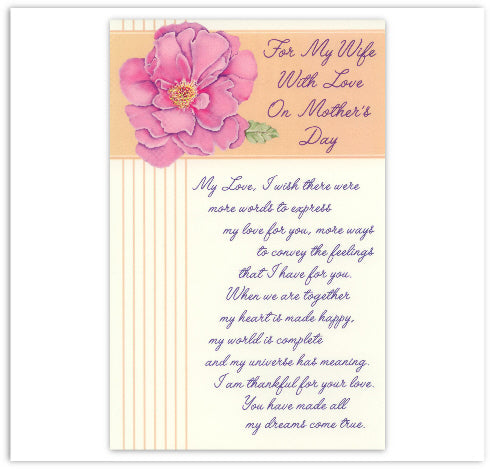 For My Wife
With Love
On Mother's
Day
My Love, I wish there were
more words to express
my love for you, more ways
to convey the feelings
that I have for you.
When we are together
my heart is made happy,
my world is complete
and my universe has meaning.
I am thankful for your love.
You have made all
my dreams come true.